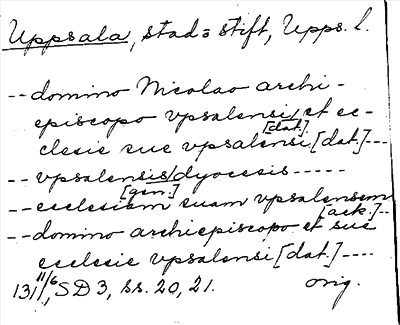 Uppsala, stad o stift, Upps. l.
-- domino Nicolao archi-
episcopo vpsalensi/ et ec-
[dat.]
clesie sue vpsalensi [dat.] ---
-- vpsalensis/ dyocesis -----
[gen.]
-- ecclesiam suam vpsalensem
[ack.] --
-- domino archiepiscopo et sue
ecclesie vpsalensi [dat.] ----
11/6
, SD 3, ss. 20, 21. orig.